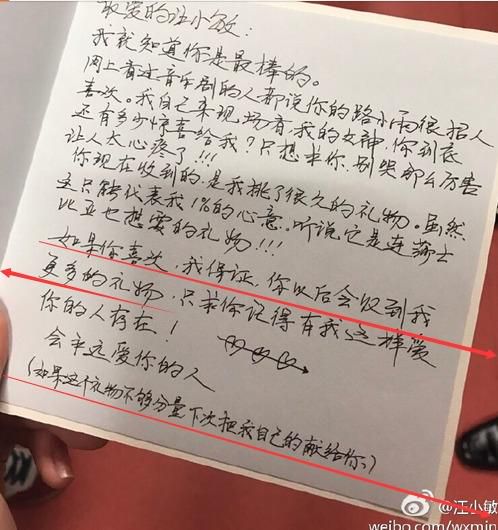 敬爱的汪小敏:
我就知道你是最棒的。
网上看过音乐剧的人都说你的路小雨很招人
喜欢。我自己来现场看,我的女神,你到底
还有多少惊喜给我?只想求你,别哭那么厉害
让人太心疼了!!!
你现在收到的是我挑了很久的礼物。虽然
这只能代表我1%的心意。听说它是连莎士
比亚也想要的礼物!!!
如果你喜欢,我保证,你以后会收到我
更多的礼物,只求你记得有我这样爱
你的人存在!
会永远爱你的人
(如果这个礼物不够分量下次把我自己的献给你。)
@汪小敏
weibo.com/wxmin